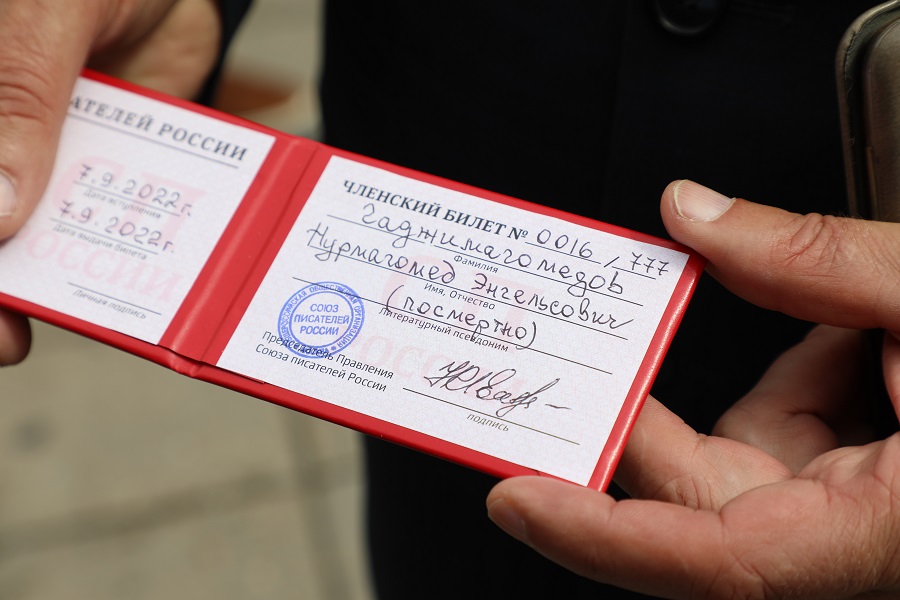 АТЕЛЕЙ РОССИИ
7.9.2022г.
Дата вступления
7.9.2022г.
Дата выдачи билета
Личная подпись
ЧЛЕНСКИЙ БИЛЕТ № 0016, 777
Гаджимагомедов
Фамилия
Нурмагомед Энгельсович
Имя, Отчество
(посмертно)
Литературный псевдоним
СОЮЗ
ПИСАТЕЛЕЙ
РОССИИ
Председатель Правления
Союза писателей России
подпись